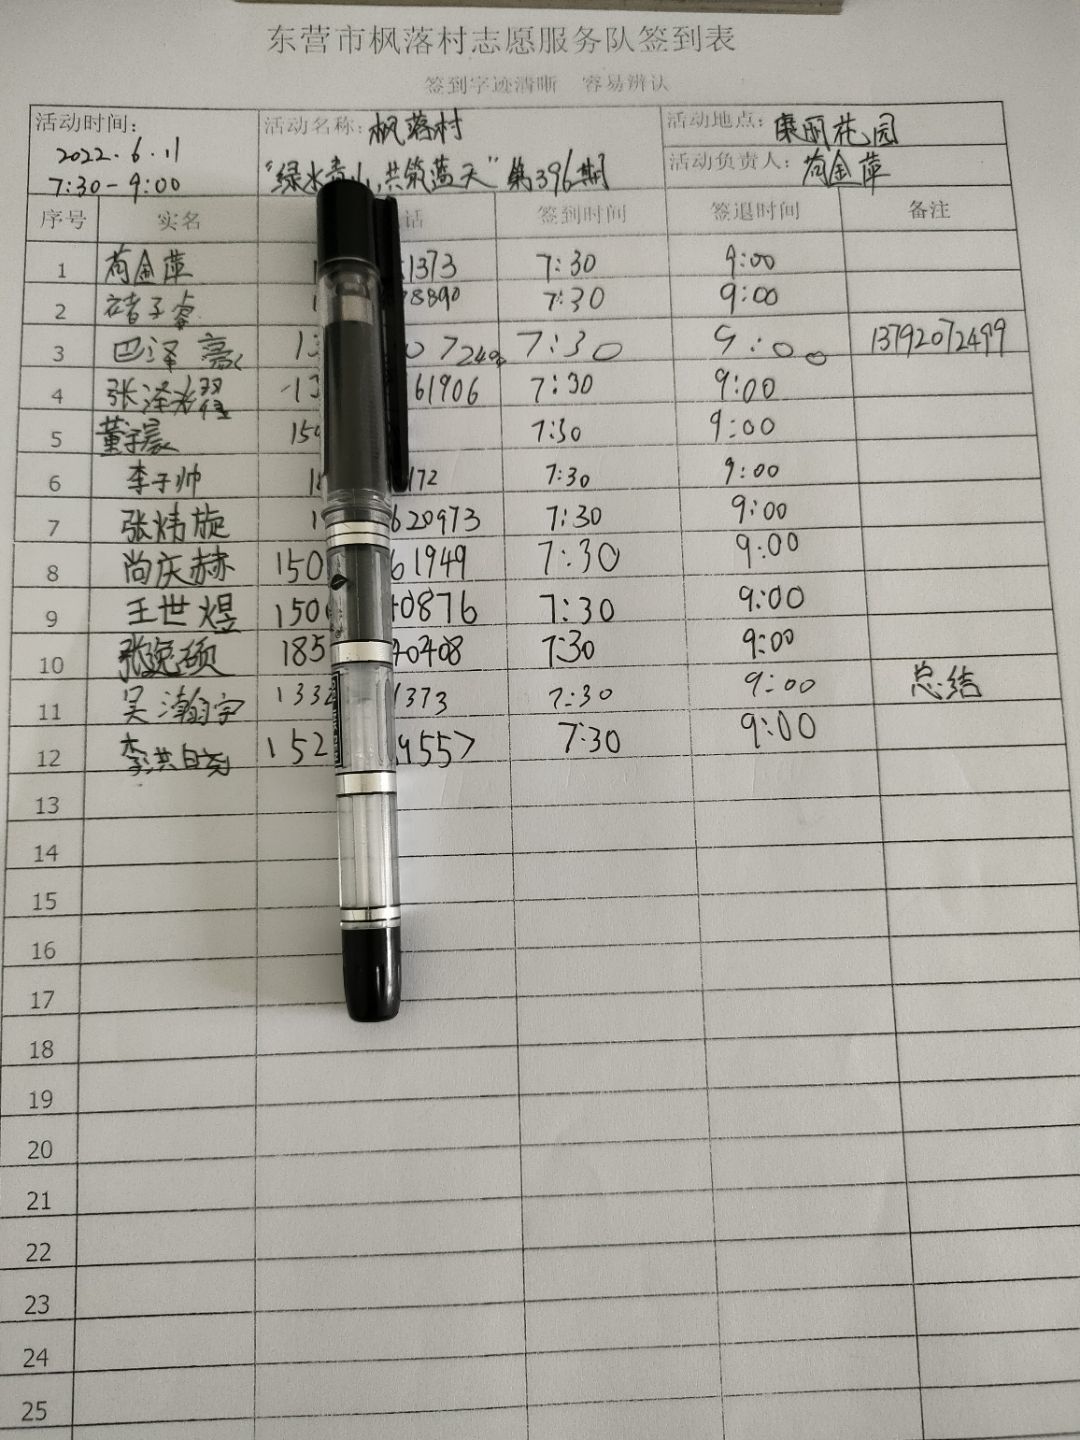 东营市枫落村志愿服务队签到表
签到字迹清晰 容易辨认
活动时间: 2022.6.11 7:30-9:00
活动名称: 枫落村 "绿水青山,共筑蓝天"第396期
活动地点: 康丽花园
活动负责人: 荀金萍
序号 实名 话 签到时间 签退时间 备注
1 荀金萍 1373 7:30 9:00
2 褚子睿 78890 7:30 9:00
3 巴泽豪 13 07249 7:30 9:00 13792072499
4 张泽 13 61906 7:30 9:00
5 董子晨 150 7:30 9:00
6 李子帅 172 7:30 9:00
7 张炜旋 1 620973 7:30 9:00
8 尚庆赫 150 61949 7:30 9:00
9 王世煜 150 0876 7:30 9:00
10 张逸硕 185 40408 7:30 9:00
11 吴瀚宇 133 1373 7:30 9:00 总结
12 李洪 152 9557 7:30 9:00
13
14
15
16
17
18
19
20
21
22
23
24
25